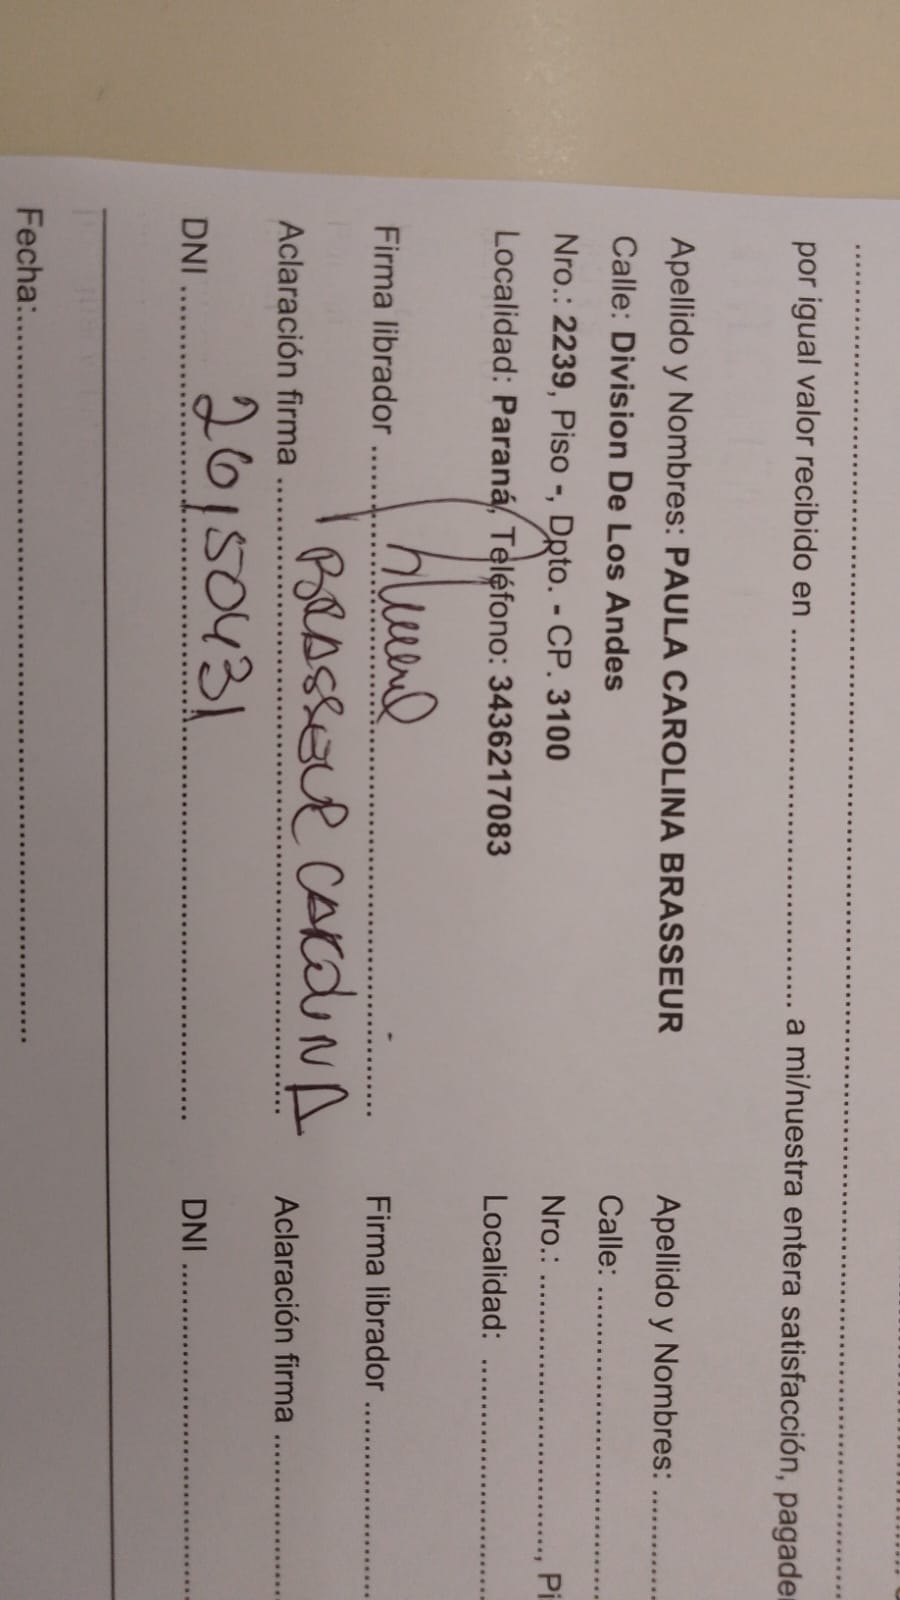 por igual valor recibido en ........................................ a mi/nuestra entera satisfacción,
Apellido y Nombres: PAULA CAROLINA BRASSEUR
Calle: Division De Los Andes
Nro.: 2239, Piso -, Dpto. - CP. 3100
Localidad: Paraná, Teléfono: 3436217083
Firma librador ........................................
Aclaración firma BRASSEUR CAROLINA
DNI 26150431
Apellido y Nombres: ............
Calle: ........................................
Nro.: ........................................,
Localidad: ........................................
Firma librador ........................
Aclaración firma ........................
DNI ........................................
Fecha: ........................................